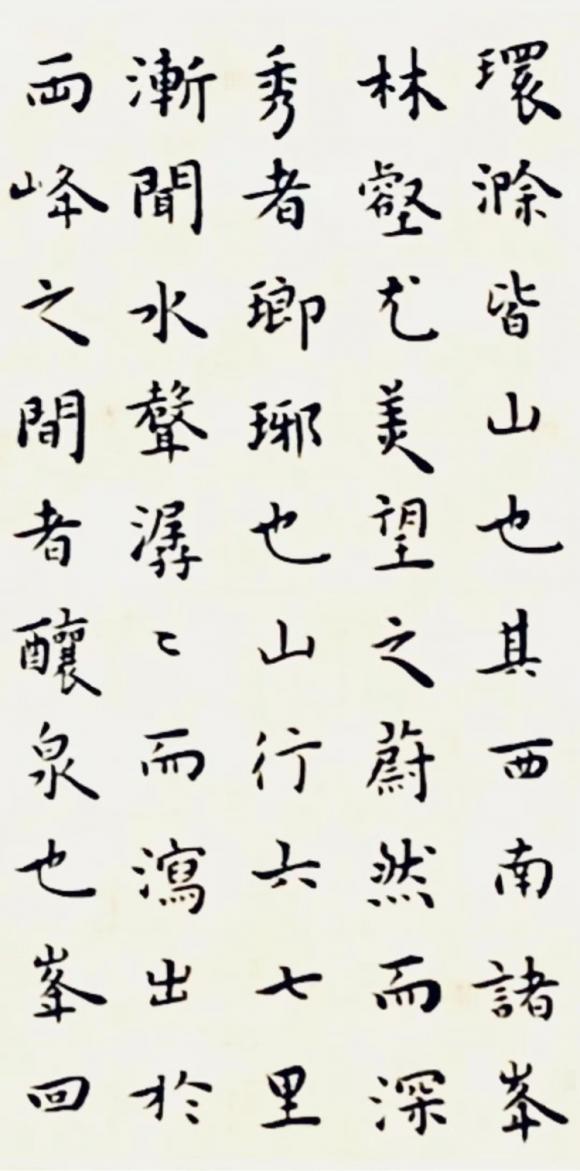 環滁皆山也其西南諸峯
林壑尤美望之蔚然而深
秀者瑯琊也山行六七里
漸聞水聲潺〻而瀉出於
两峰之間者釀泉也峯回